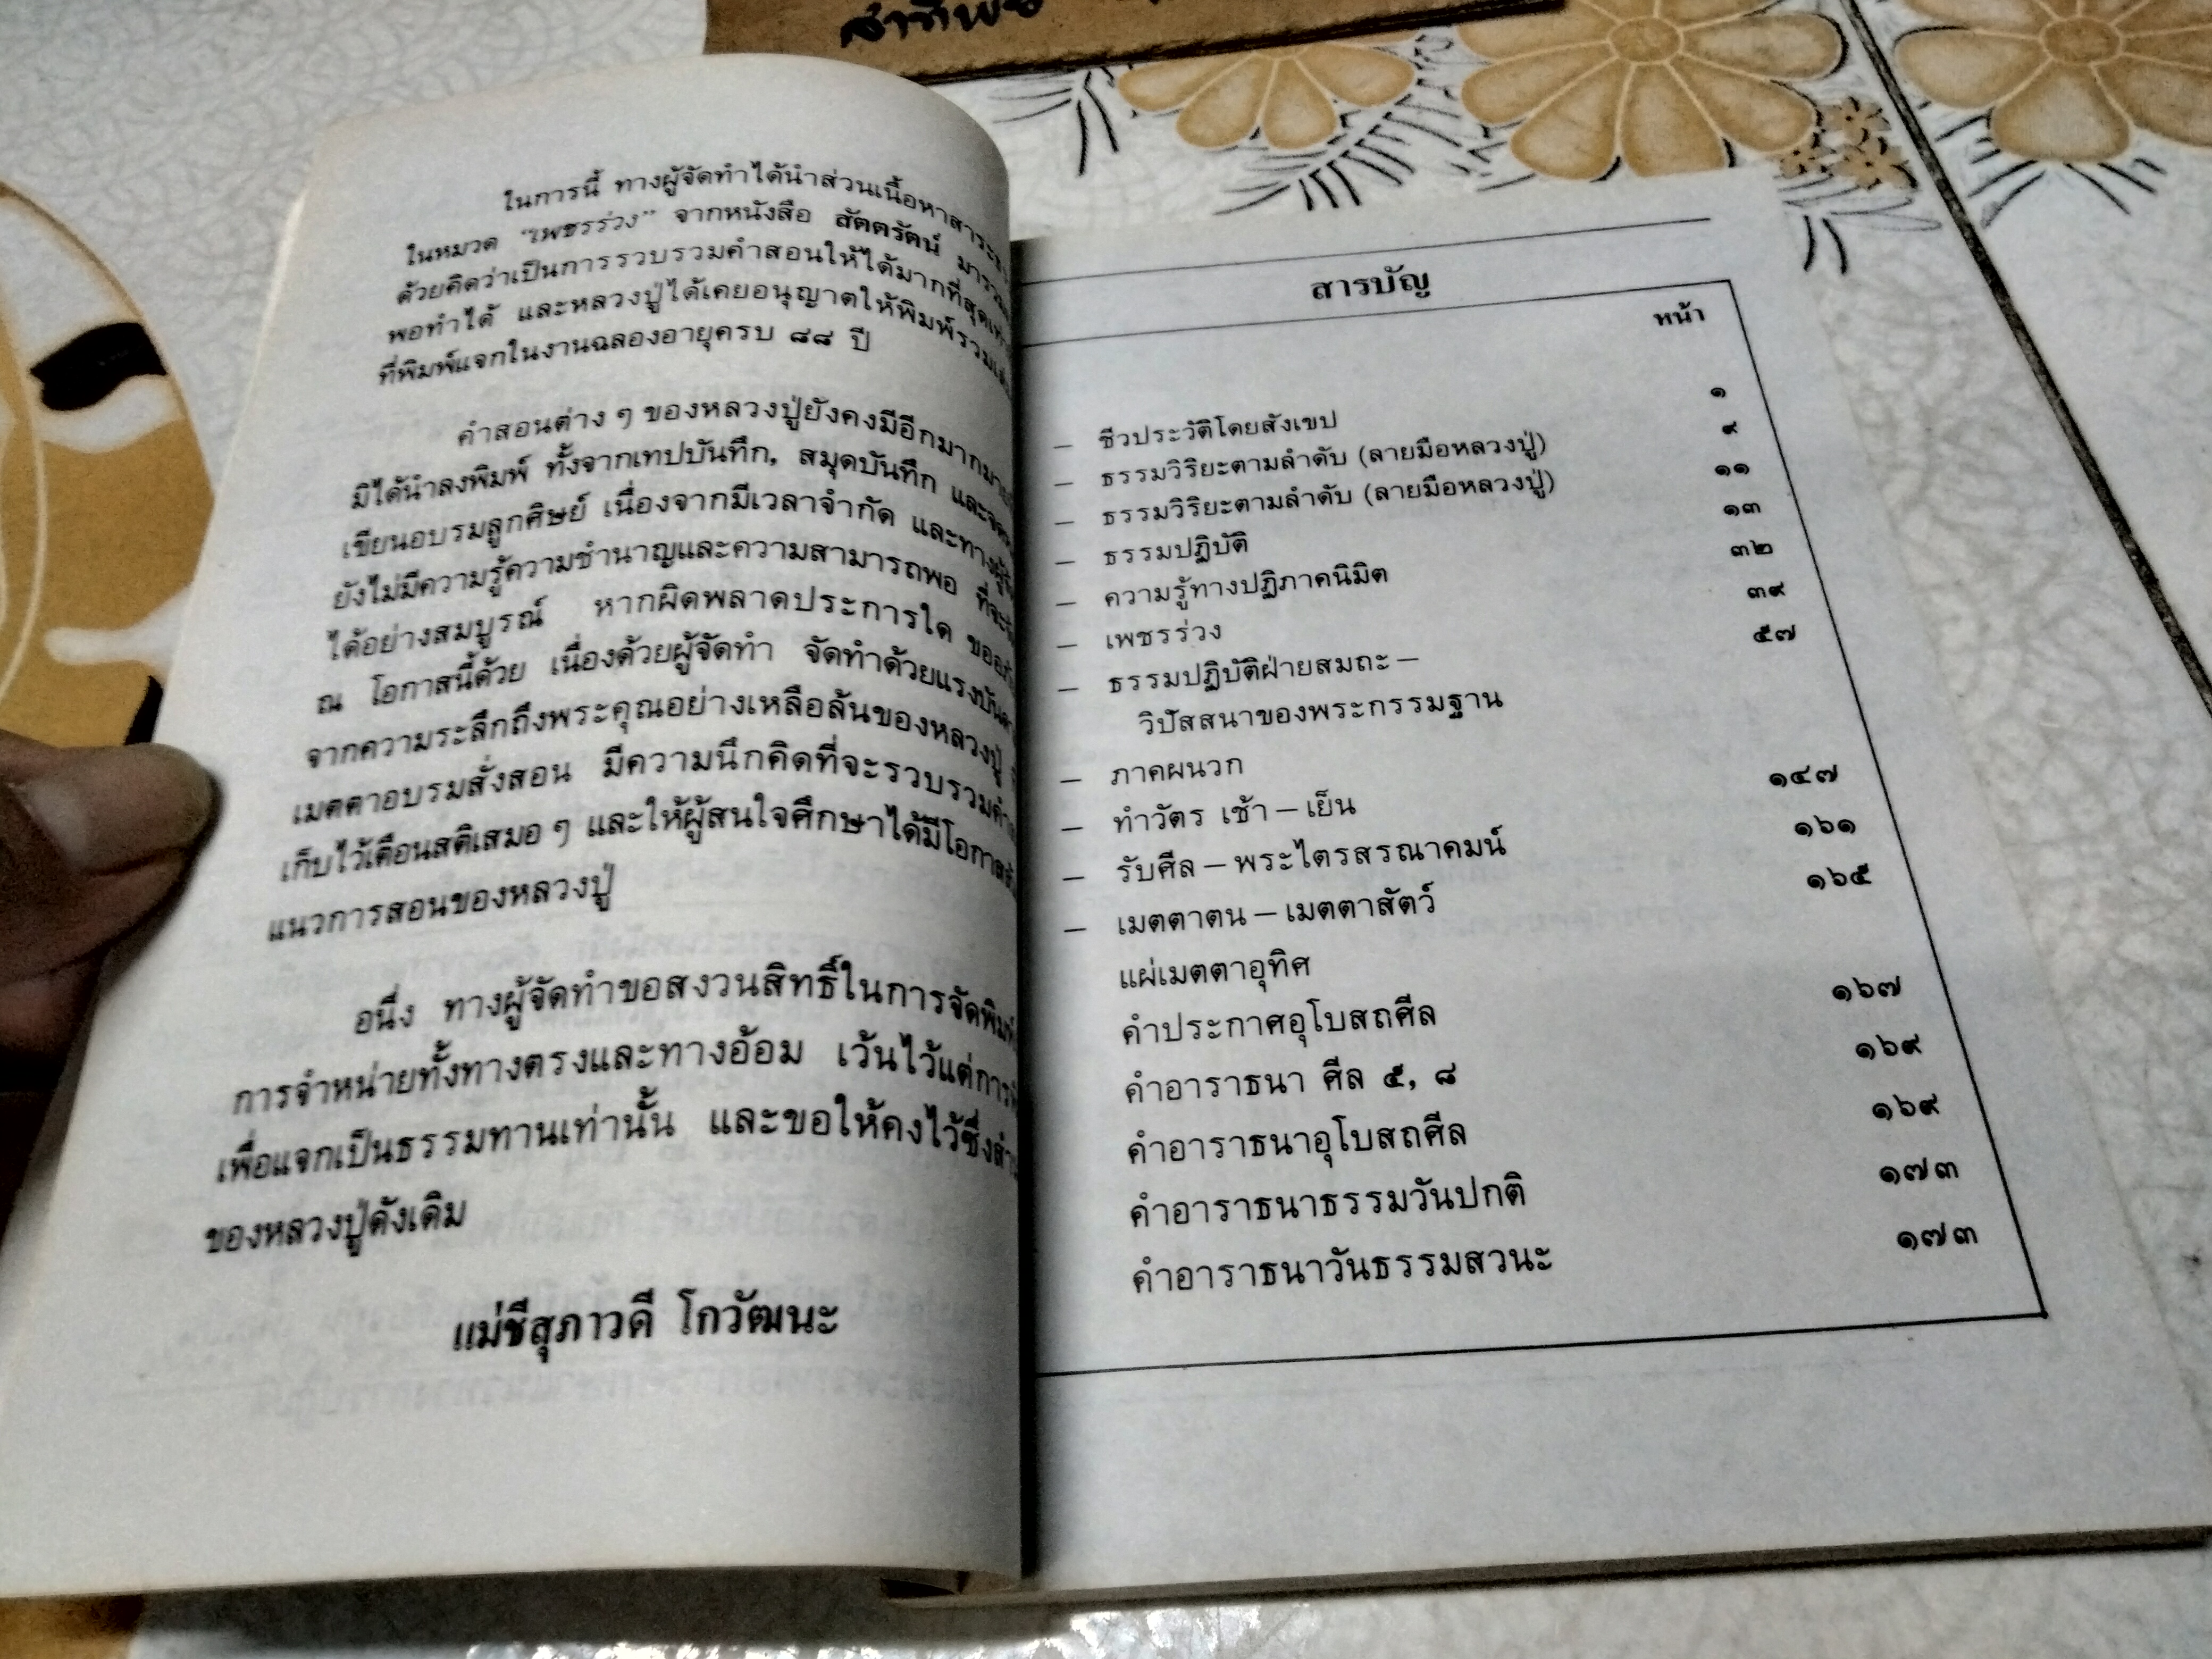 สารีพ
ในการนี้ ทางผู้จัดทำได้นำส่วนเนื้อหาสาระ
ในหมวด “เพชรร่วง” จากหนังสือ สัตตรัตน์
ด้วยคิดว่าเป็นการรวบรวมคำสอนให้ได้มากที่สุด
พอทำได้ และหลวงปู่ได้เคยอนุญาตให้พิมพ์รวม
ที่พิมพ์แจกในงานฉลองอายุครบ ๘๘ ปี
คำสอนต่าง ๆ ของหลวงปู่ยังคงมีอีกมากมาย
มิได้นำลงพิมพ์ ทั้งจากเทปบันทึก, สมุดบันทึก และ
เขียนอบรมลูกศิษย์ เนื่องจากมีเวลาจำกัด และทาง
ยังไม่มีความรู้ความชำนาญและความสามารถพอ ที่จะ
ได้อย่างสมบูรณ์ หากผิดพลาดประการใด
ณ โอกาสนี้ด้วย เนื่องด้วยผู้จัดทำ จัดทำด้วย
จากความระลึกถึงพระคุณอย่างเหลือล้นของหลวงปู่
เมตตาอบรมสั่งสอน มีความนึกคิดที่จะรวบรวม
เก็บไว้เตือนสติเสมอ ๆ และให้ผู้สนใจศึกษาได้มีโอกาส
แนวการสอนของหลวงปู่
อนึ่ง ทางผู้จัดทำขอสงวนสิทธิ์ในการจัดพิมพ์
การจำหน่ายทั้งทางตรงและทางอ้อม เว้นไว้แต่การ
เพื่อแจกเป็นธรรมทานเท่านั้น และขอให้คงไว้ซึ่ง
ของหลวงปู่ดังเดิม
แม่ชีสุภาวดี โกวัฒนะ
สารบัญ
หน้า
– ชีวประวัติโดยสังเขป ๑
– ธรรมวิริยะตามลำดับ (ลายมือหลวงปู่) ๙
– ธรรมวิริยะตามลำดับ (ลายมือหลวงปู่) ๑๑
– ธรรมปฏิบัติ ๑๓
– ความรู้ทางปฏิภาคนิมิต ๓๒
– เพชรร่วง ๓๙
– ธรรมปฏิบัติฝ่ายสมถะ – ๕๗
วิปัสสนาของพระกรรมฐาน
– ภาคผนวก
– ทำวัตร เช้า – เย็น ๑๔๗
– รับศีล – พระไตรสรณาคมน์ ๑๖๑
– เมตตาตน – เมตตาสัตว์ ๑๖๕
แผ่เมตตาอุทิศ
คำประกาศอุโบสถศีล ๑๖๗
คำอาราธนา ศีล ๕, ๘ ๑๖๙
คำอาราธนาอุโบสถศีล ๑๖๙
คำอาราธนาธรรมวันปกติ ๑๗๓
คำอาราธนาวันธรรมสวนะ ๑๗๓